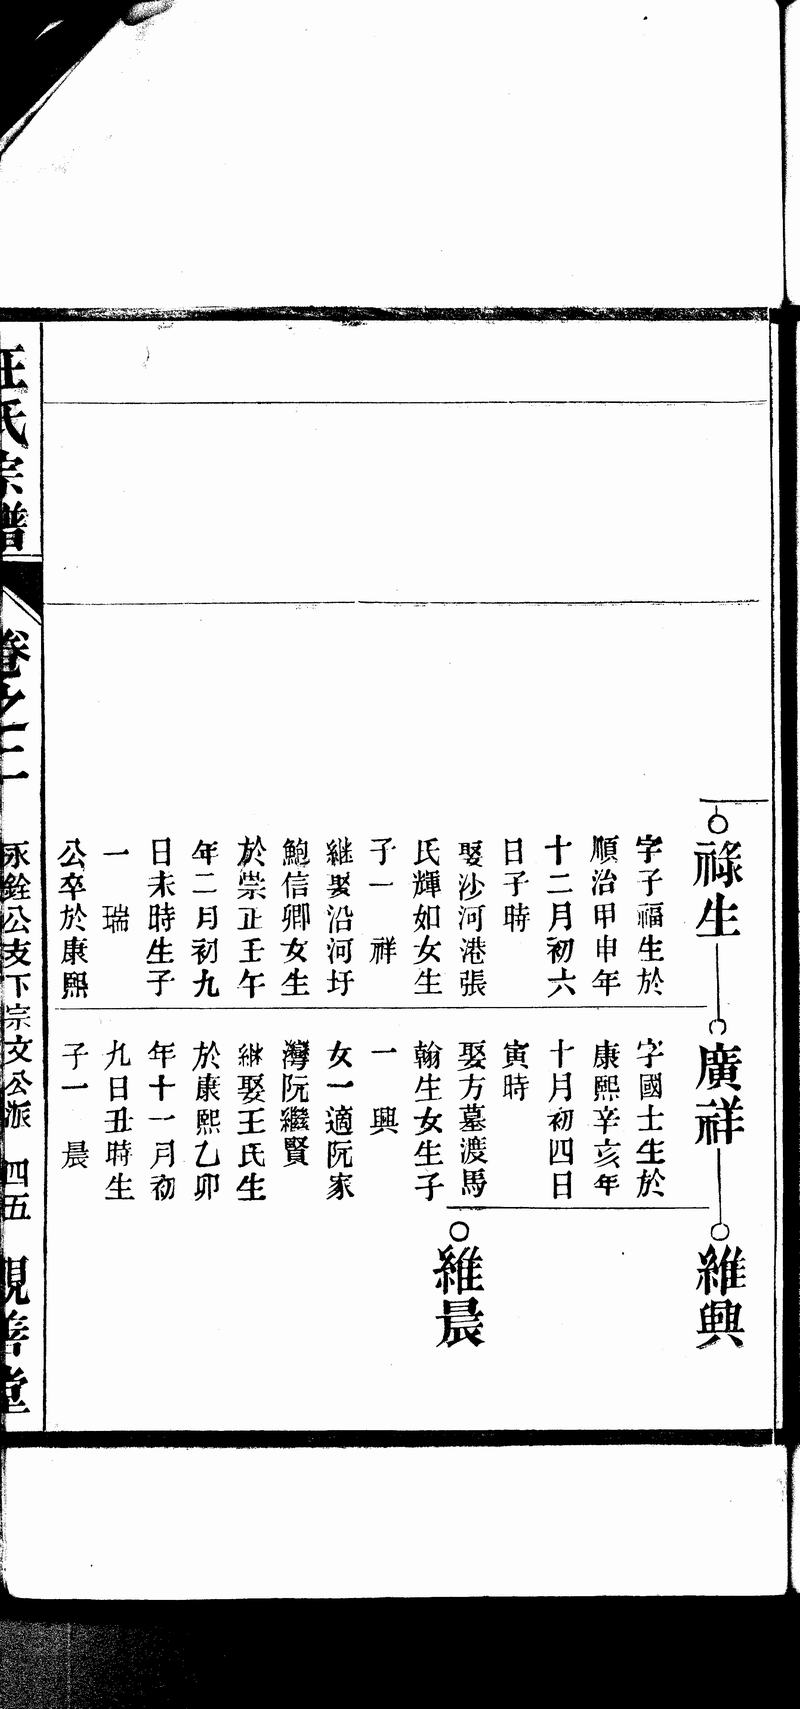 祿生
字子福生於
順治甲申年
十二月初六
日子時
娶沙河港張
氏輝如女生
子一 祥
継娶沿河圩
鮑信卿女生
於崇正壬午
年二月初九
日未時生子
一 瑞
公卒於康熙
廣祥
字國士生於
康熙辛亥年
十月初四日
寅時
娶方墓渡馬
翰生女生子
一 興
女一適阮家
灣阮繼賢
継娶王氏生
於康熙乙卯
年十一月初
九日丑時生
子一 晨
維興
維晨
汪氏宗譜
卷之二
永銓公支下宗文公派 四五
觀善堂